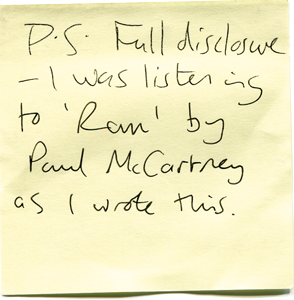 P.S. Full disclosure
– I was listening
to 'Ram' by
Paul McCartney
as I wrote this.